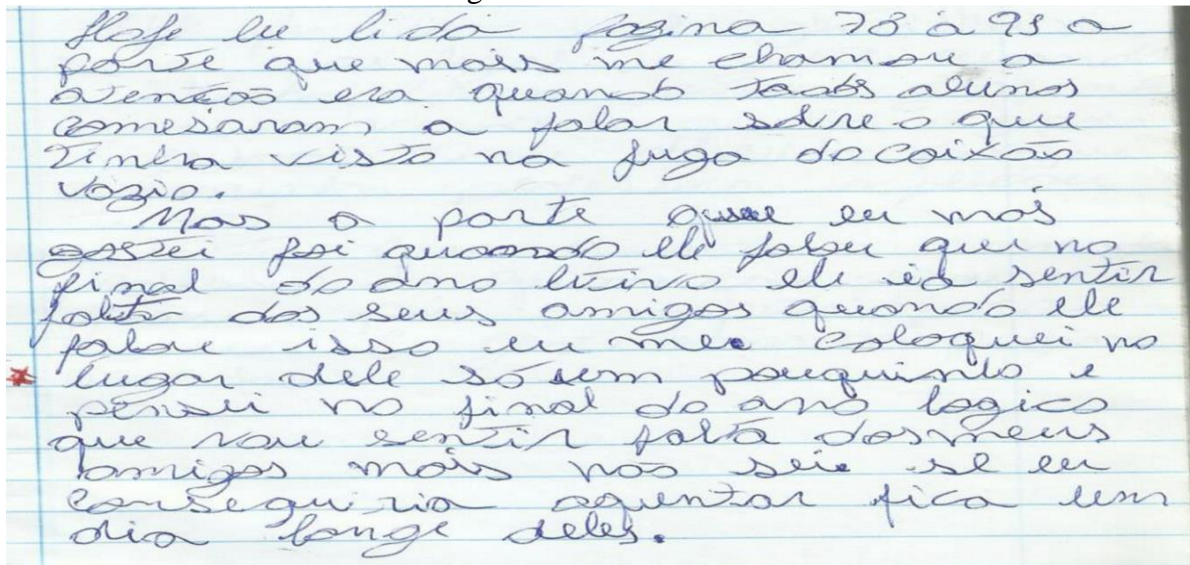 Hoje eu li da pagina 78 à 91 a
parte que mais me chamou a
atenção era quando todos alunos
comesaram a falar sobre o que
tinha visto na fuga do caixão
vazio.
Mas a parte que eu mas
gostei foi quando ele falou que no
final do ano letivo ele ia sentir
falta dos seus amigos quando ele
falou isso eu me coloquei no
lugar dele só um pouquinho e
pensei no final do ano logico
que vou sentir falta dos meus
amigos mais não sei se eu
conseguiria aguentar fica um
dia longe deles.